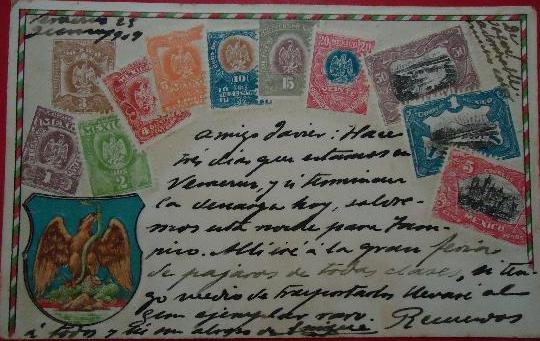 Veracruz 23
1909
5
CINCO
10
15
MEXICO
20 MEXICO 20
VEINTE
50
1
5
MEXICO
MEXICO
1
MEXICO
2
amigo Javier: Hace
tres dias que estamos en
Veracruz, y si terminan
la descarga hoy, saldre-
mos esta noche para Tam-
pico. Alli iré á la gran feria
de pajaros de todas clases, si ten-
go medio de trasportarlos llevaré al-
gun ejemplar raro. Recuerdos
á todos y un abrazo de